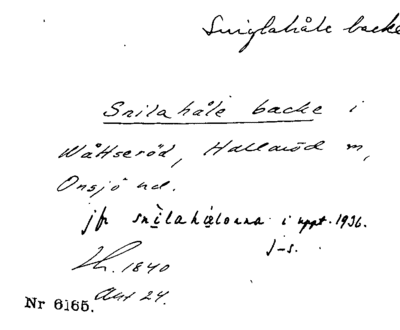 Sniglahåle backe
Snilahåle backe i
Wåttseröd, Hallaröd m,
Onsjö hd.
jfr snìlahȧlorna i uppt. 1936.
J-s.
Th. 1840
Akt 24.
Nr 6165.